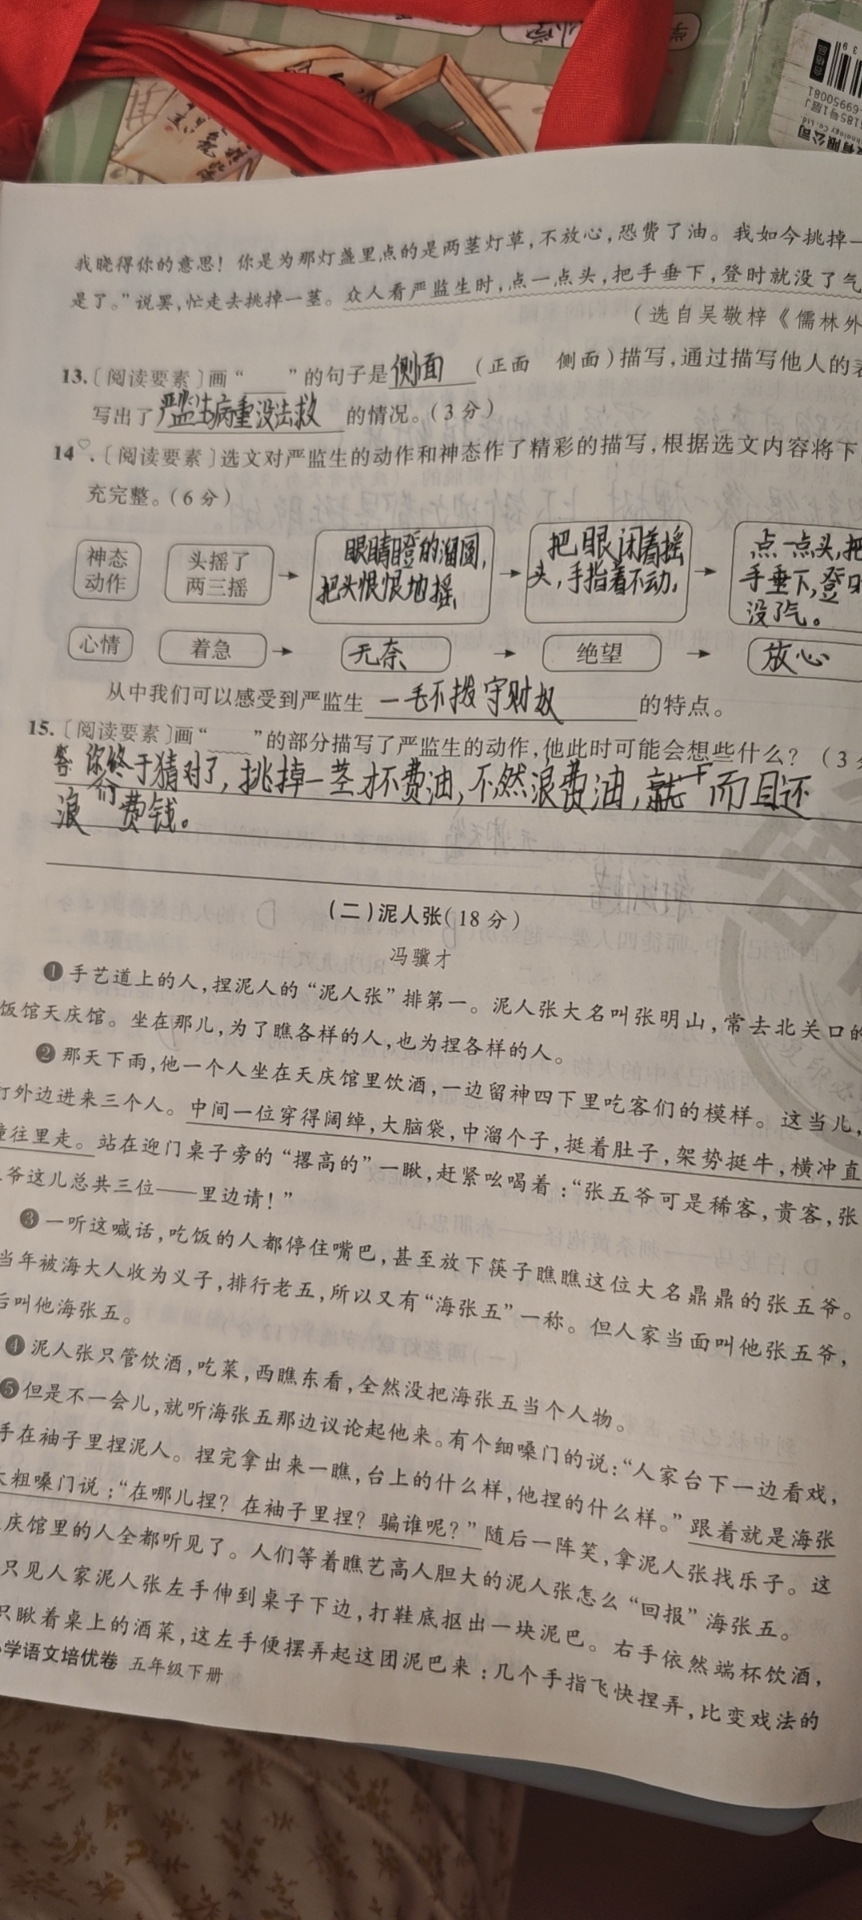 我晓得你的意思！你是为那灯盏里点的是两茎灯草，不放心，恐费了油。我如今挑掉一
是了。”说罢，忙走去挑掉一茎。众人看严监生时，点一点头，把手垂下，登时就没了气
（选自吴敬梓《儒林外
13.〔阅读要素〕画“____”的句子是侧面（正面 侧面）描写，通过描写他人的表
写出了严监生病重没法救的情况。（3分）
14.〔阅读要素〕选文对严监生的动作和神态作了精彩的描写，根据选文内容将下
充完整。（6分）
神态
动作
头摇了
两三摇
眼睛瞪的溜圆，
把头恨恨地摇，
把眼闭着摇
头，手指着不动，
点一点头，把
手垂下，登时
没了气。
心情
着急
无奈
绝望
放心
从中我们可以感受到严监生一毛不拨守财奴的特点。
15.〔阅读要素〕画“ ”的部分描写了严监生的动作，他此时可能会想些什么？（3
答 你终于猜对了，挑掉一茎才不费油，不然浪费油，就 而且还
浪费钱。
（二）泥人张（18分）
冯骥才
❶手艺道上的人，捏泥人的“泥人张”排第一。泥人张大名叫张明山，常去北关口的
饭馆天庆馆。坐在那儿，为了瞧各样的人，也为捏各样的人。
❷那天下雨，他一个人坐在天庆馆里饮酒，一边留神四下里吃客们的模样。这当儿，
打外边进来三个人。中间一位穿得阔绰，大脑袋，中溜个子，挺着肚子，架势挺牛，横冲直
撞往里走。站在迎门桌子旁的“撂高的”一瞅，赶紧吆喝着：“张五爷可是稀客，贵客，张
爷这儿总共三位——里边请！”
❸一听这喊话，吃饭的人都停住嘴巴，甚至放下筷子瞧瞧这位大名鼎鼎的张五爷。
当年被海大人收为义子，排行老五，所以又有“海张五”一称。但人家当面叫他张五爷，
后叫他海张五。
❹泥人张只管饮酒，吃菜，西瞧东看，全然没把海张五当个人物。
❺但是不一会儿，就听海张五那边议论起他来。有个细嗓门的说：“人家台下一边看戏，
手在袖子里捏泥人。捏完拿出来一瞧，台上的什么样，他捏的什么样。”跟着就是海张
大粗嗓门说：“在哪儿捏？在袖子里捏？骗谁呢？”随后一阵笑，拿泥人张找乐子。这
庆馆里的人全都听见了。人们等着瞧艺高人胆大的泥人张怎么“回报”海张五。
只见人家泥人张左手伸到桌子下边，打鞋底抠出一块泥巴。右手依然端杯饮酒，
只瞅着桌上的酒菜，这左手便摆弄起这团泥巴来：几个手指飞快捏弄，比变戏法的
小学语文培优卷 五年级下册